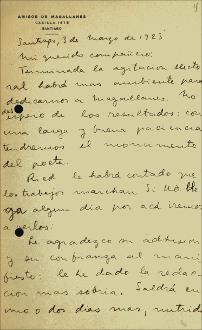 AMIGOS DE MAGALLANES
CASILLA 1675
SANTIAGO
Santiago, 3 de Marzo de 1925
Mi querido compañero:
Terminada la agitacion electo
ral habrá mas ambiente para
dedicarnos a Magallanes. No
espero de los resultados: con
una larga y buena paciencia
tendremos el monumento
del poeta.
Pued le habrá contado que
los trabajos marchan. Si Ud. lle
ga algun dia por acá iremos
a verlos.
Le agradezco su adhesion
y su confianza al mani
fiesto: le he dado la redac
cion mas sobria. Saldrá en
uno o dos dias mas, nutrido